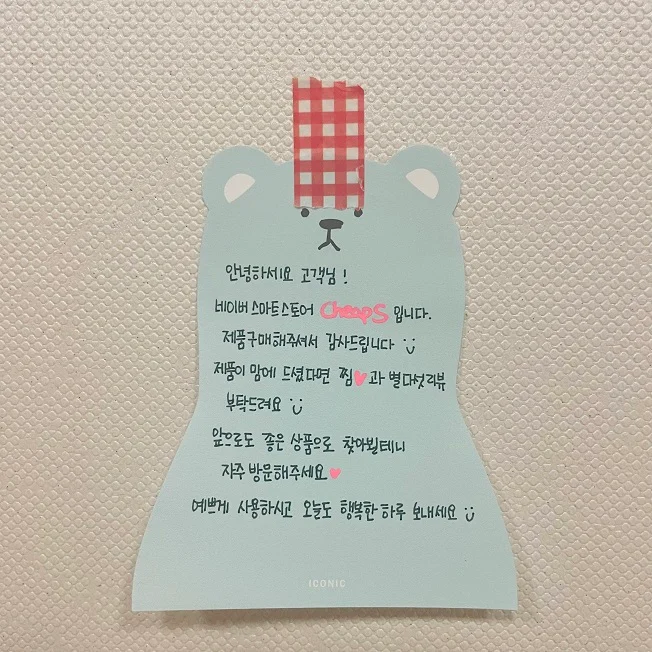 안녕하세요 고객님!
네이버 스마트스토어 Cheaps 입니다.
제품구매해주셔서 감사드립니다 :)
제품이 맘에 드셨다면 찜♥과 별다섯리뷰
부탁드려요 :)
앞으로도 좋은 상품으로 찾아뵐테니
자주 방문해주세요♥
예쁘게 사용하시고 오늘도 행복한 하루 보내세요 :)
ICONIC